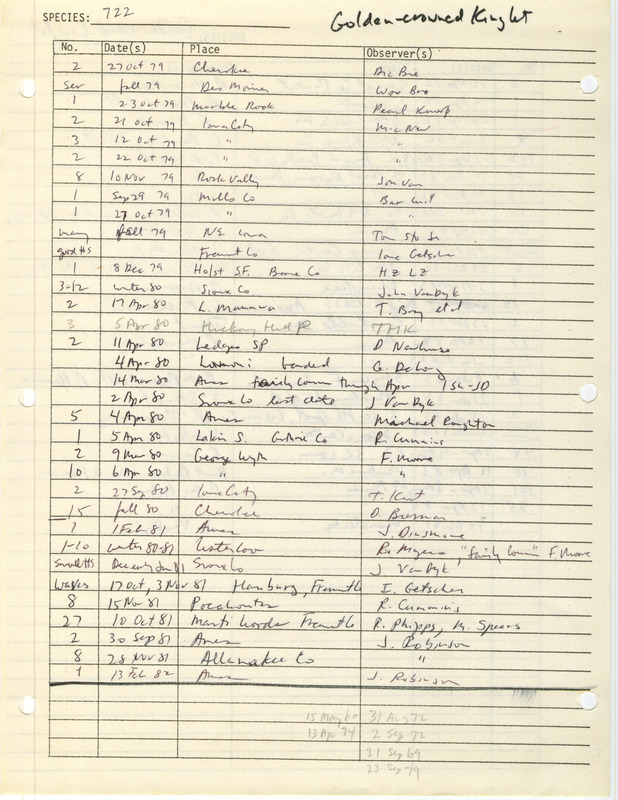 SPECIES: 722 Golden-crowned Kinglet
No. Date(s) Place Observer(s)
2 27 Oct 79 Cherokee Dic Bie
Sev fall 79 Des Moines Woo Bro
1 23 Oct 79 Marble Rock Pearl Knoop
2 21 Oct 79 Iowa City Mic New
3 12 Oct 79 " "
2 22 Oct 79 " "
8 10 Nov 79 Rock Valley Joh Van
1 Sep 29 79 Mills Co Bar
1 27 Oct 79 " "
many fall 79 NE Iowa Tom Sto
good #s Fremont Co Ione Getscher
1 8 Dec 79 Holst S.F. Boone Co HZ LZ
3-12 winter 80 Sioux Co John VanDyk
2 17 Apr 80 L. Manawa T. Bray et al
3 5 Apr 80 Hickory Hill P THK
2 11 Apr 80 Ledges SP D Newhouse
4 Apr 80 Lamoni banded G. DeLong
14 Mar 80 Ames fairly common through Apr ISU-JD
2 Apr 80 Sioux Co last date J Van Dyk
5 4 Apr 80 Ames Michael Roughton
1 5 Apr 80 Lakin S. Guthrie Co R. Cummins
2 9 Mar 80 George Wyth F. Moore
10 6 Apr 80 " "
2 27 Sep 80 Iowa City T. Kent
15 fall 80 Cherokee D. Bierman
1 1 Feb 81 Ames J. Dinsmore
1-10 winter 80-81 Waterloo R. Myers, "fairly common" F. Moore
Small #s Dec early Jan 81 Sioux Co J VanDyk
Waves 17 Oct, 3 Nov 81 Hamburg, Fremont Co I. Getscher
8 15 Nov 81 Pocahontas R. Cummins
27 10 Oct 81 Manti Woods Fremont Co R. Phipps, M. Spears
2 30 Sep 81 Ames J. Robinson
8 28 Nov 81 Allamakee Co "
1 13 Feb 82 Ames J. Robinson
15 May 60 31 Aug 72
13 Apr 74 2 Sep 72
21 Sep 69
23 Sep 79